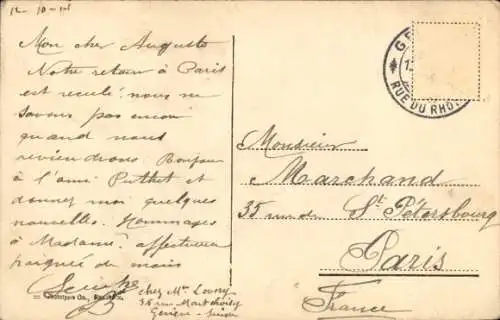 12-10-08
Mon cher Auguste
Notre retour à Paris
est reculé nous ne
savons pas encore
quand nous
reviendrons Bonjour
à l'ami Puthet et
donnez moi quelques
nouvelles. Hommages
à Madame. affectueuse
poignée de main
chez Mme
36 rue Montchoisy
Genève - Suisse
GE
RUE DU RHÔ
Monsieur
Marchand
35 rue de St. Pétersbourg
Paris
France